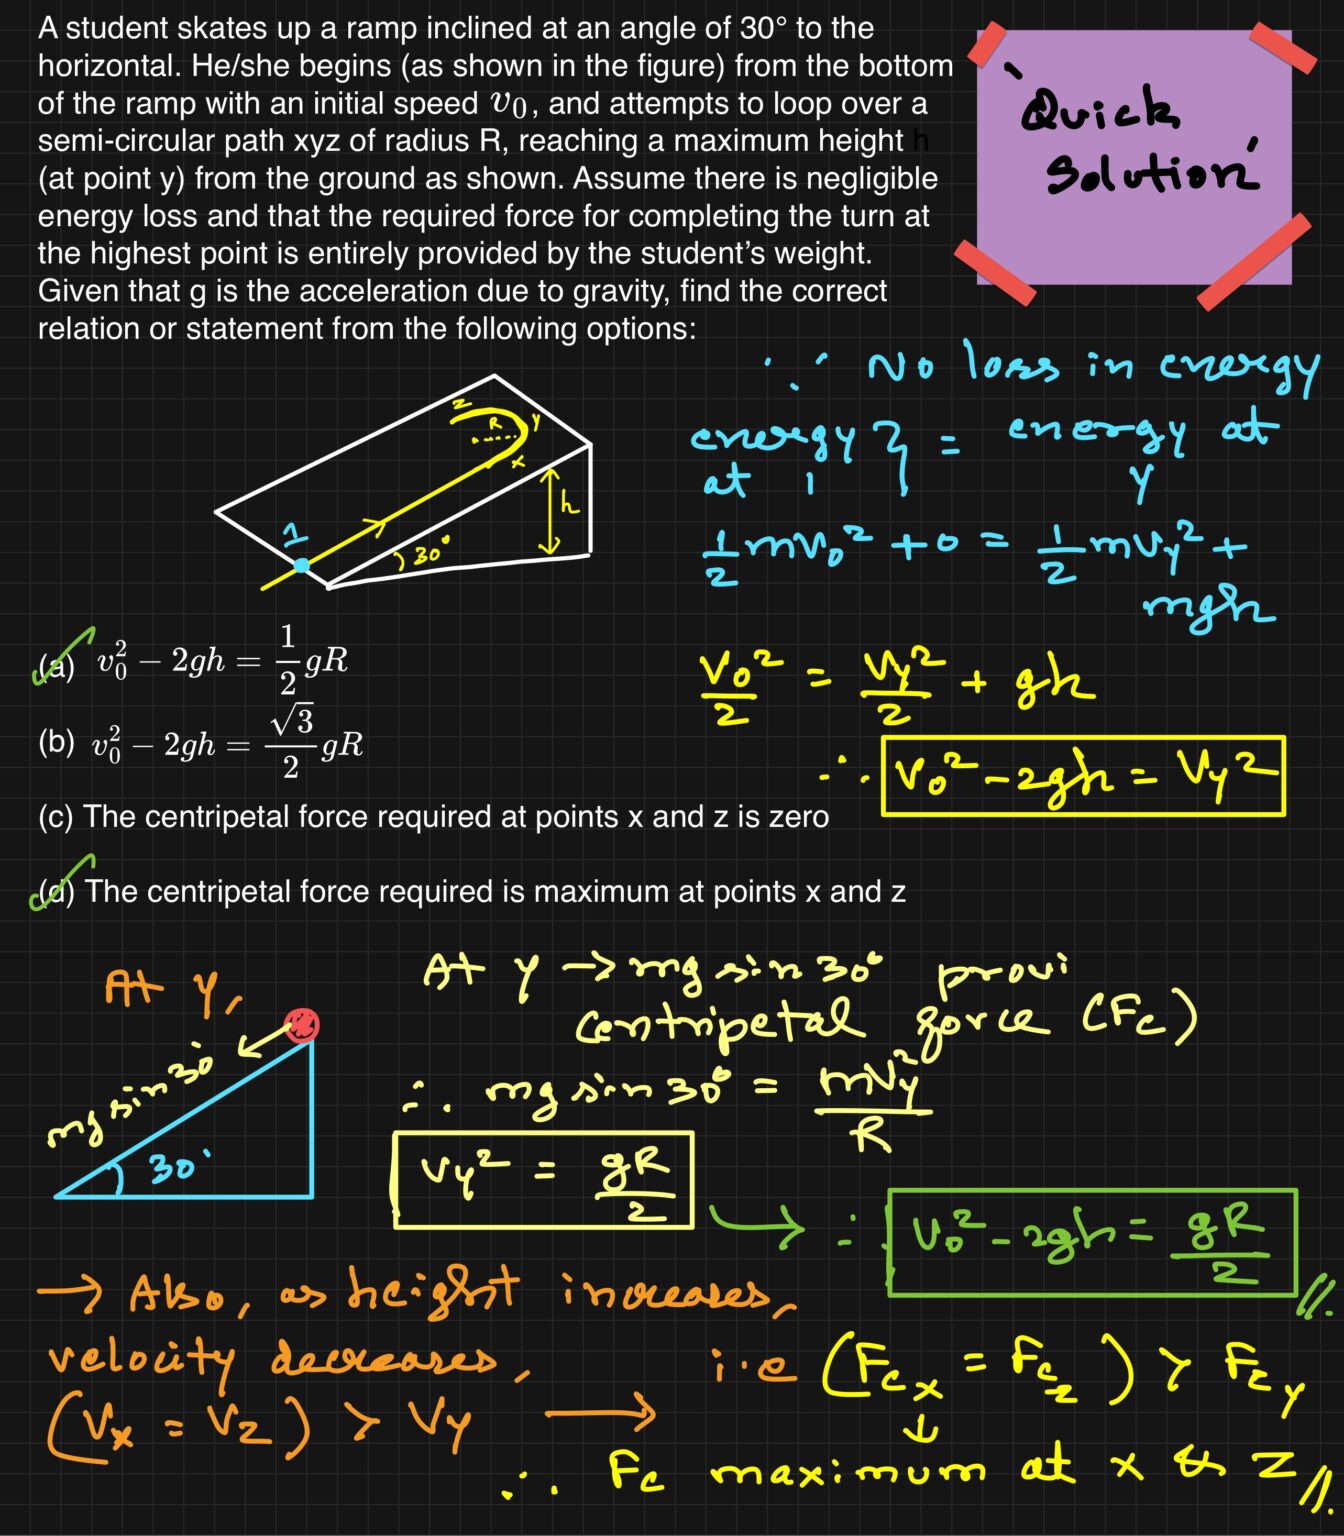 A student skates up a ramp inclined at an angle of 30° to the
horizontal. He/she begins (as shown in the figure) from the bottom
of the ramp with an initial speed v₀, and attempts to loop over a
semi-circular path xyz of radius R, reaching a maximum height h
(at point y) from the ground as shown. Assume there is negligible
energy loss and that the required force for completing the turn at
the highest point is entirely provided by the student's weight.
Given that g is the acceleration due to gravity, find the correct
relation or statement from the following options:
'Quick
Solution'
∵ No loss in energy
energy } = energy at
at 1 y
1/2 mv₀² + 0 = 1/2 mv_y² +
mgh
z
R
y
x
h
1
30°
(a) v₀² − 2gh = 1/2 gR
(b) v₀² − 2gh = √3/2 gR
(c) The centripetal force required at points x and z is zero
(d) The centripetal force required is maximum at points x and z
v₀²/2 = v_y²/2 + gh
∴ v₀² − 2gh = v_y²
At y,
mg sin 30°
30°
At y → mg sin 30° provi
centripetal force (Fc)
∴ mg sin 30° = mv_y²/R
v_y² = gR/2
→ ∴ v₀² − 2gh = gR/2 //.
→ Also, as height increases,
velocity decreases,
(v_x = v_z) > v_y →
i.e (Fc_x = Fc_z) > Fc_y
↓
∴ Fc maximum at x & z //.